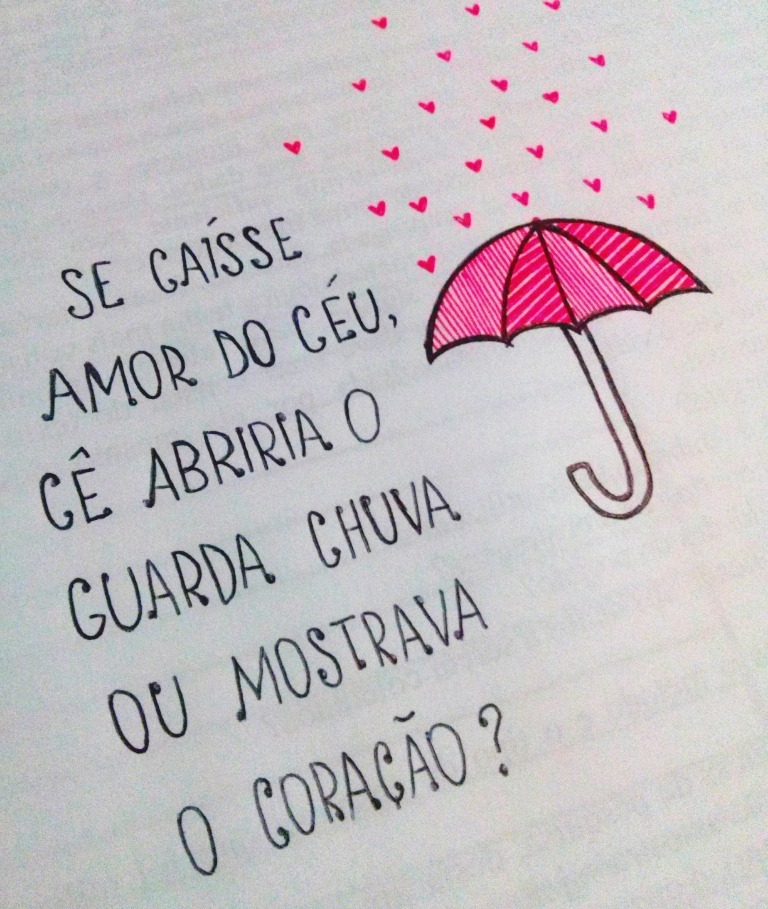 SE CAÍSSE
AMOR DO CÉU,
CÊ ABRIRIA O
GUARDA CHUVA
OU MOSTRAVA
O CORAÇÃO?